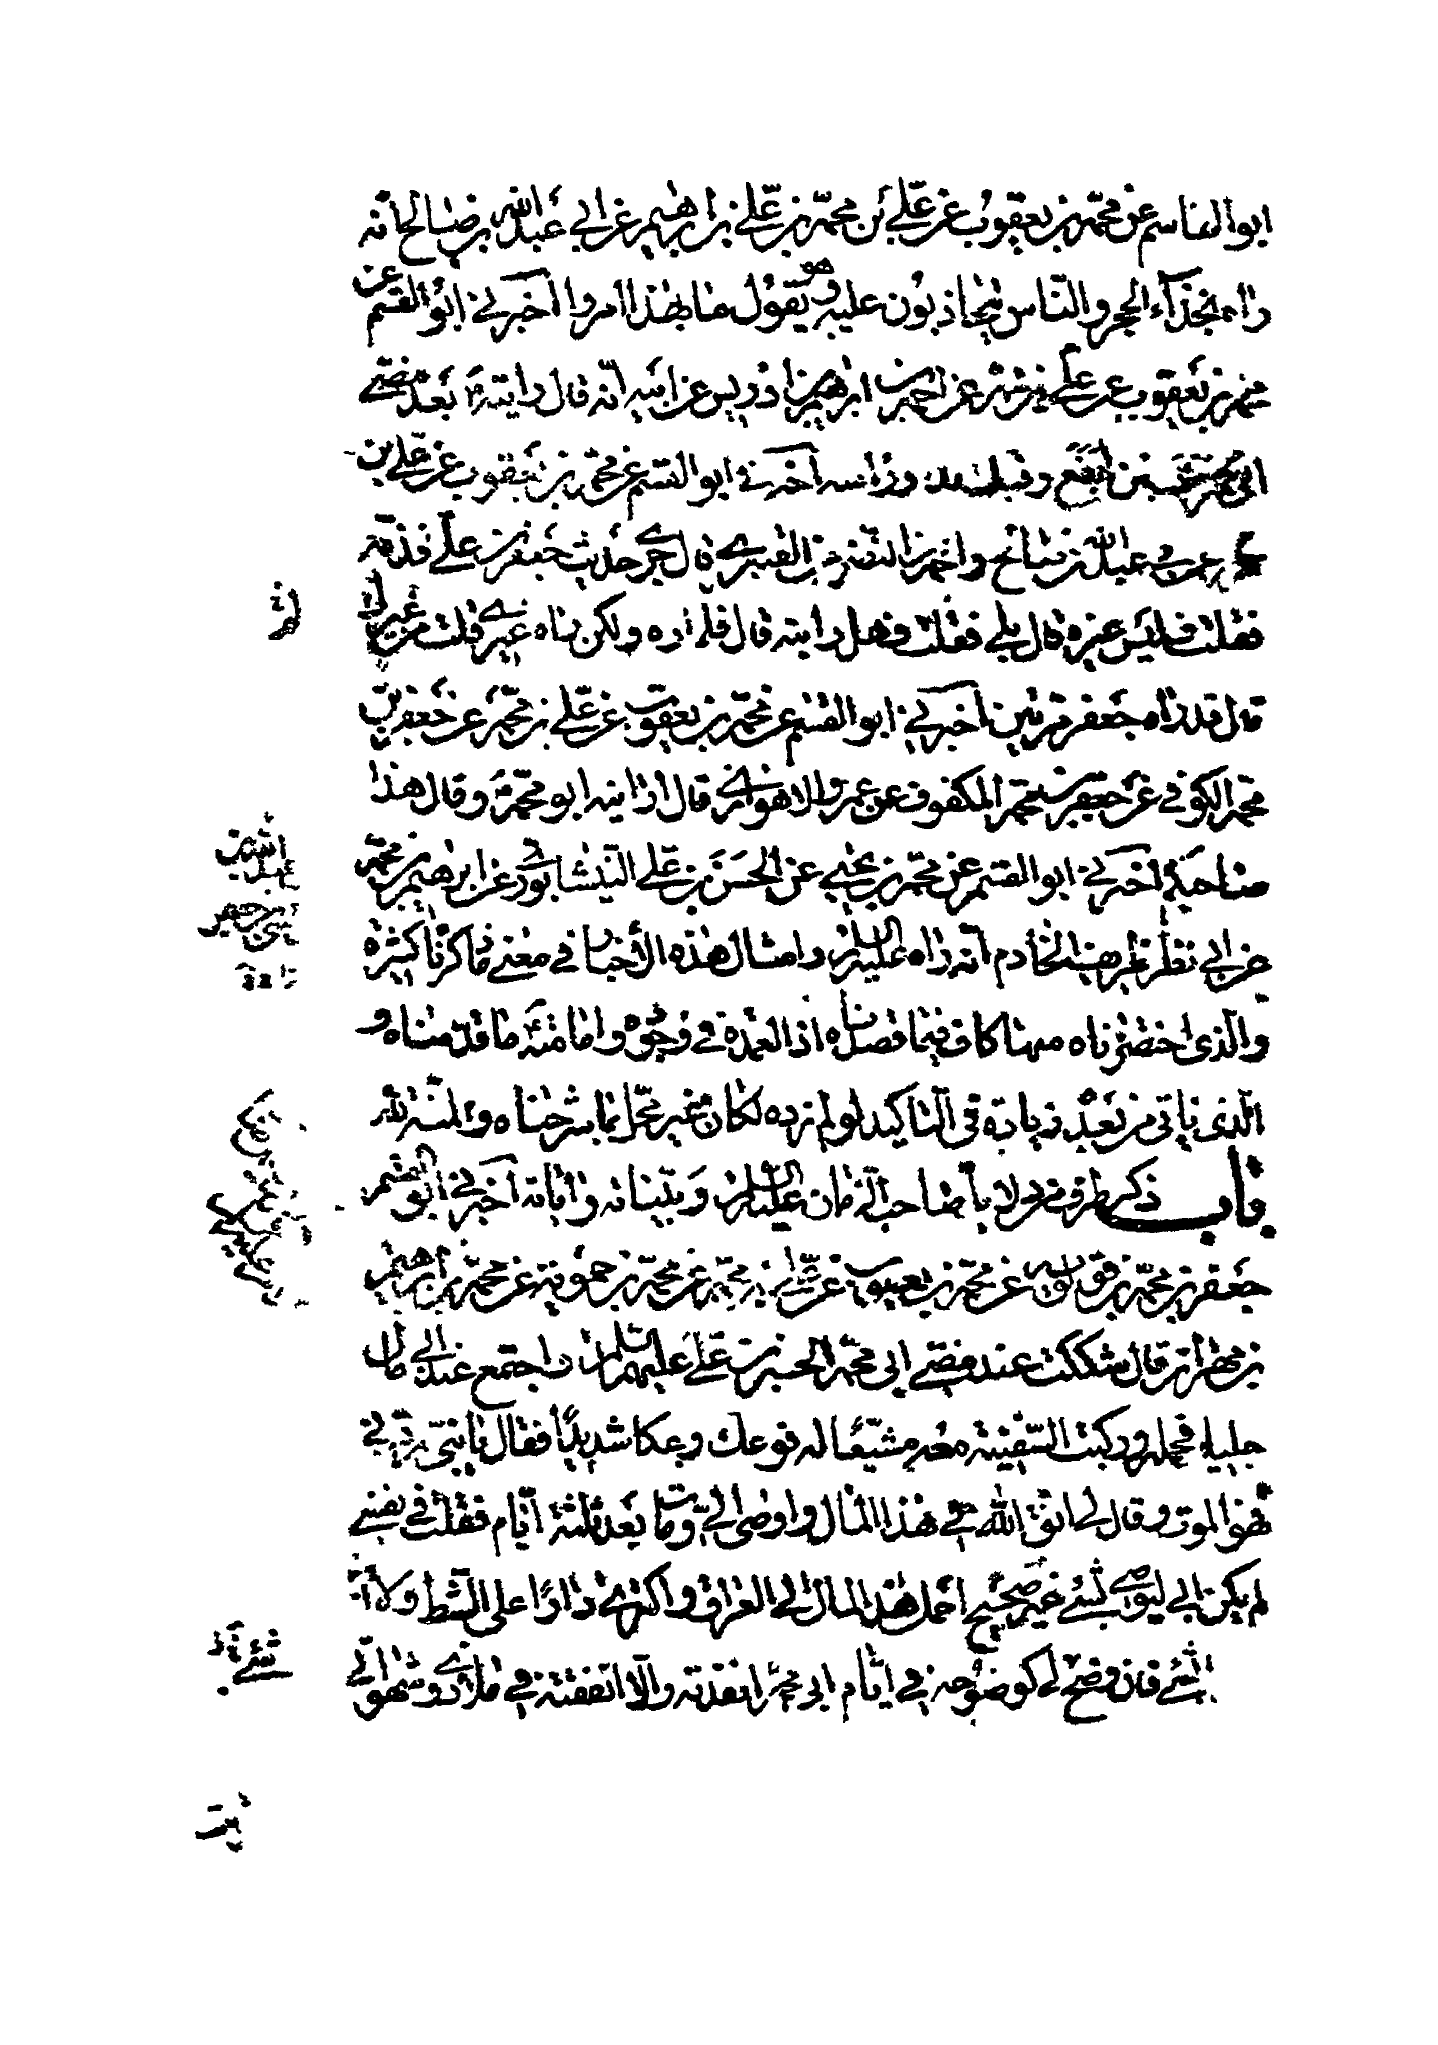 ابو القاسم عن محمّد بن يعقوب عن عليّ بن محمّد عن عليّ بن ابرهيم عن ابي عبد الله بن صالح انه
راه بحذآء الحجر والنّاس يتجاذبون عليه وهو يقول ما بهذا امروا اخبرني ابو القسم عن
محمد بن يعقوب عن عليّ بن محمّد عن احمد بن ابرهيم بن ادريس عن ابيه انه قال رايته بعد مضي
ابي محمّد حين ايفع وقبلت يده وراسه اخبرني ابو القسم عن محمّد بن يعقوب عن علي بن
عبد الله بن صالح واحمد بن النضر عن القنبري قال جرى حديث جعفر بن عليّ فذمّه
فقلت فليس غيره قال بلى فقلت فهل رايته قال فلم اره ولكن راه غيري قلت من غيرك
قال قد راه جعفر مرتين اخبرني ابو القسم عن محمّد بن يعقوب عن عليّ بن محمّد عن جعفر بن
محمّد الكوفي عن جعفر بن محمّد المكفوف عن عمرو الاهوازي قال ارانيه ابو محمّد وقال هذا
صاحبكم اخبرني ابو القسم عن محمّد بن يحيى عن الحسن بن علي النيشابوري عن ابرهيم بن محمّد
عن ابي نصر ظريف الخادم انّه راه عليه السلام وامثال هذه الاخبار في معنى ما ذكرناه كثيرة
والذى اختصرناه منها كاف فيما قصدناه اذ العمدة في وجوده وامامته ما قدّمناه و
الّذى ياتى من بعد زيادة فى التاكيد لو لم نورده لكان غير مخل بما شرحناه والمنّة لله
باب ذكر طرف من دلايل صاحب الزمان عليه السلام وبيّناته واياته اخبرني ابو القسم
جعفر بن محمّد بن قولويه عن محمّد بن يعقوب عن عليّ بن محمّد عن محمّد بن حمويه عن محمّد بن ابرهيم
بن مهزيار قال شككت عند مضي ابي محمّد الحسن بن علي عليهما السلام واجتمع عند ابي مال
جليل فحمله وركبت السّفينة معه مشيّعا له فوعك وعكا شديدًا فقال يا بنيّ ردّني
فهو الموت وقال لي اتّق الله في هذا المال واوصى اليّ ومات بعد ثلثة ايّام فقلت في نفسي
لم يكن ابي ليوصي بشئ غير صحيح احمل هذا المال الى العراق واكتري دارًا على الشط ولا اخبر
بشئ فان وضح لي كوضوحه في ايّام ابي محمّد انفذته والّا انفقته في ملاذّي وشهواتي